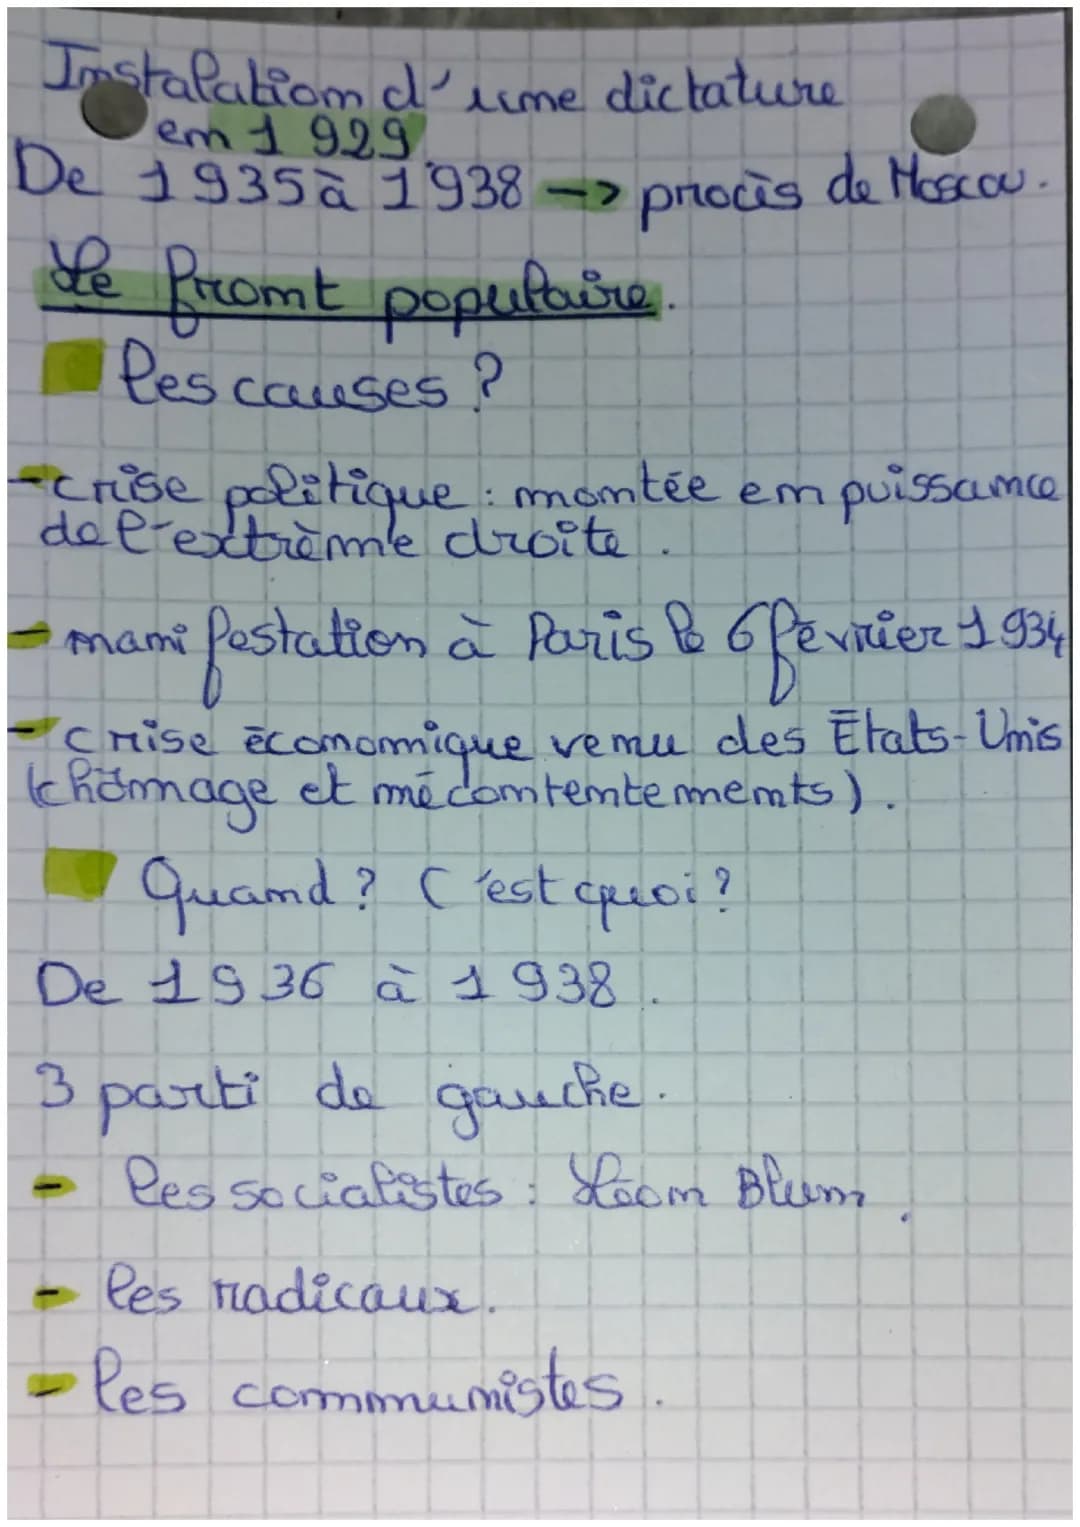 Instalation d'une dictature
en 1929
De 1935 à 1938 -> procès de Moscou.
Le front populaire.
les causes ?
- crise politique : montée en puissance
de l'extrème droite.
- manifestation à Paris le 6 février 1934
- crise économique venu des États-Unis
(chômage et mécontentements).
Quand ? C'est quoi ?
De 1936 à 1938.
3 parti de gauche.
- les socialistes : Léon Blum.
- les radicaux.
- les communistes.